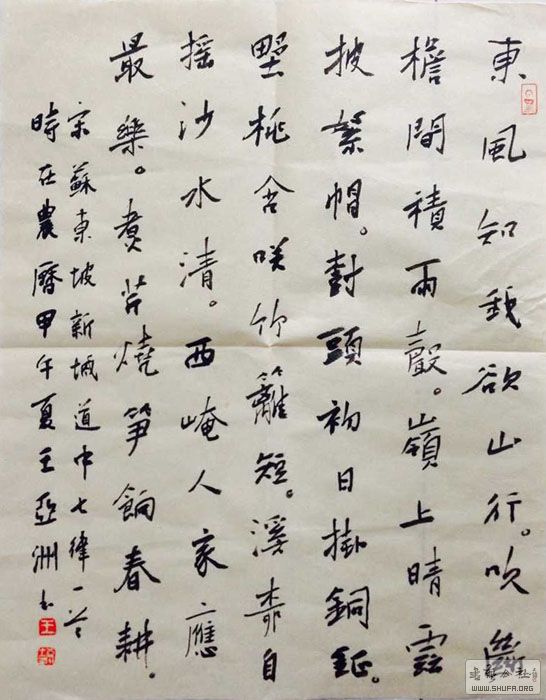 東風知我欲山行。吹斷
檐間積雨聲。嶺上晴雲
披絮帽。頭初日掛銅鉦。
埜桃含咲竹籬短。溪柳自
搖沙水清。西崦人家應
最樂。煮芹燒笋餉春耕。
宋蘇東坡新城道中七律一首
時在農曆甲午夏王亞洲书
WWW.SHUFA.ORG